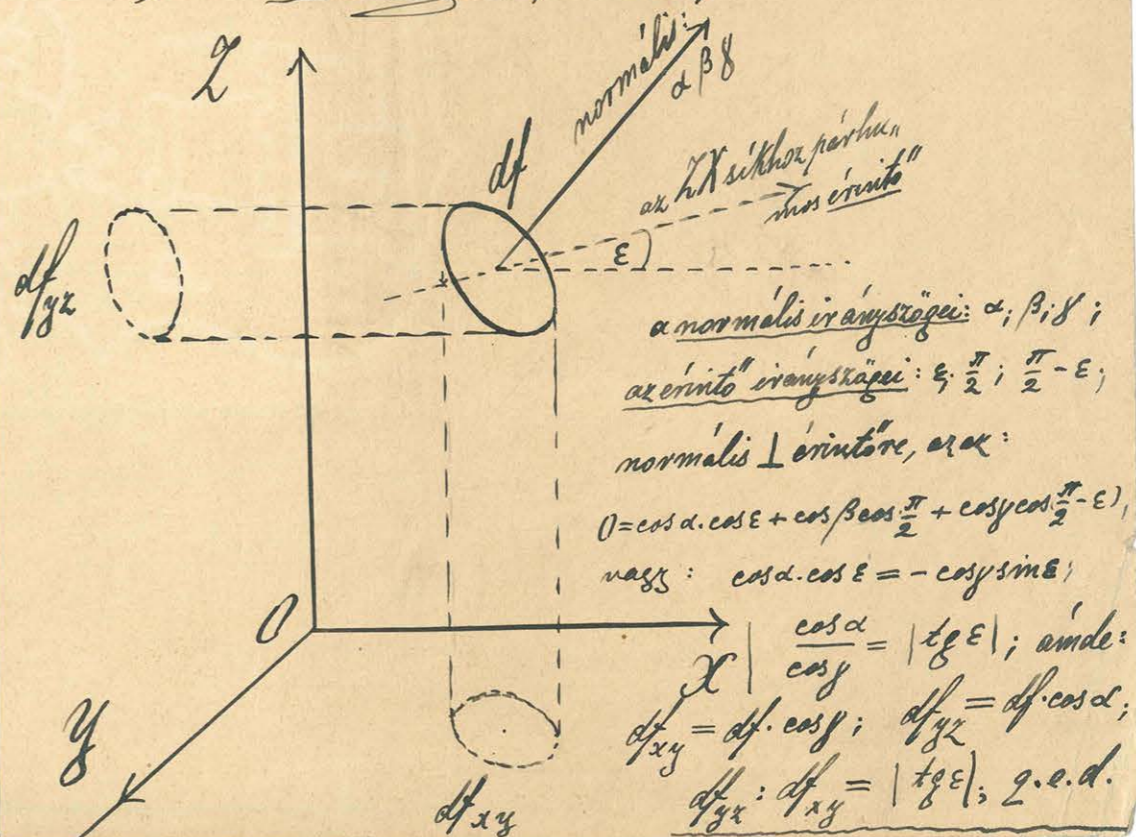 Z
normális:
α β γ
df
az ZX síkhoz párhu„
mos érintő"
ε
df yz
a normális irányszögei: α; β; γ;
az érintő irányszögei: ε; π/2; π/2 - ε;
normális ⊥ érintőre, azaz:
0 = cos α. cos ε + cos β cos π/2 + cos γ cos π/2 - ε),
vagy: cos α. cos ε = - cos γ sin ε;
O
X
| cos α / cos γ = | tg ε |; ámde:
Y
df xy = df. cos γ; df yz = df. cos α;
df xy
df yz : df xy = | tg ε |; q. e. d.